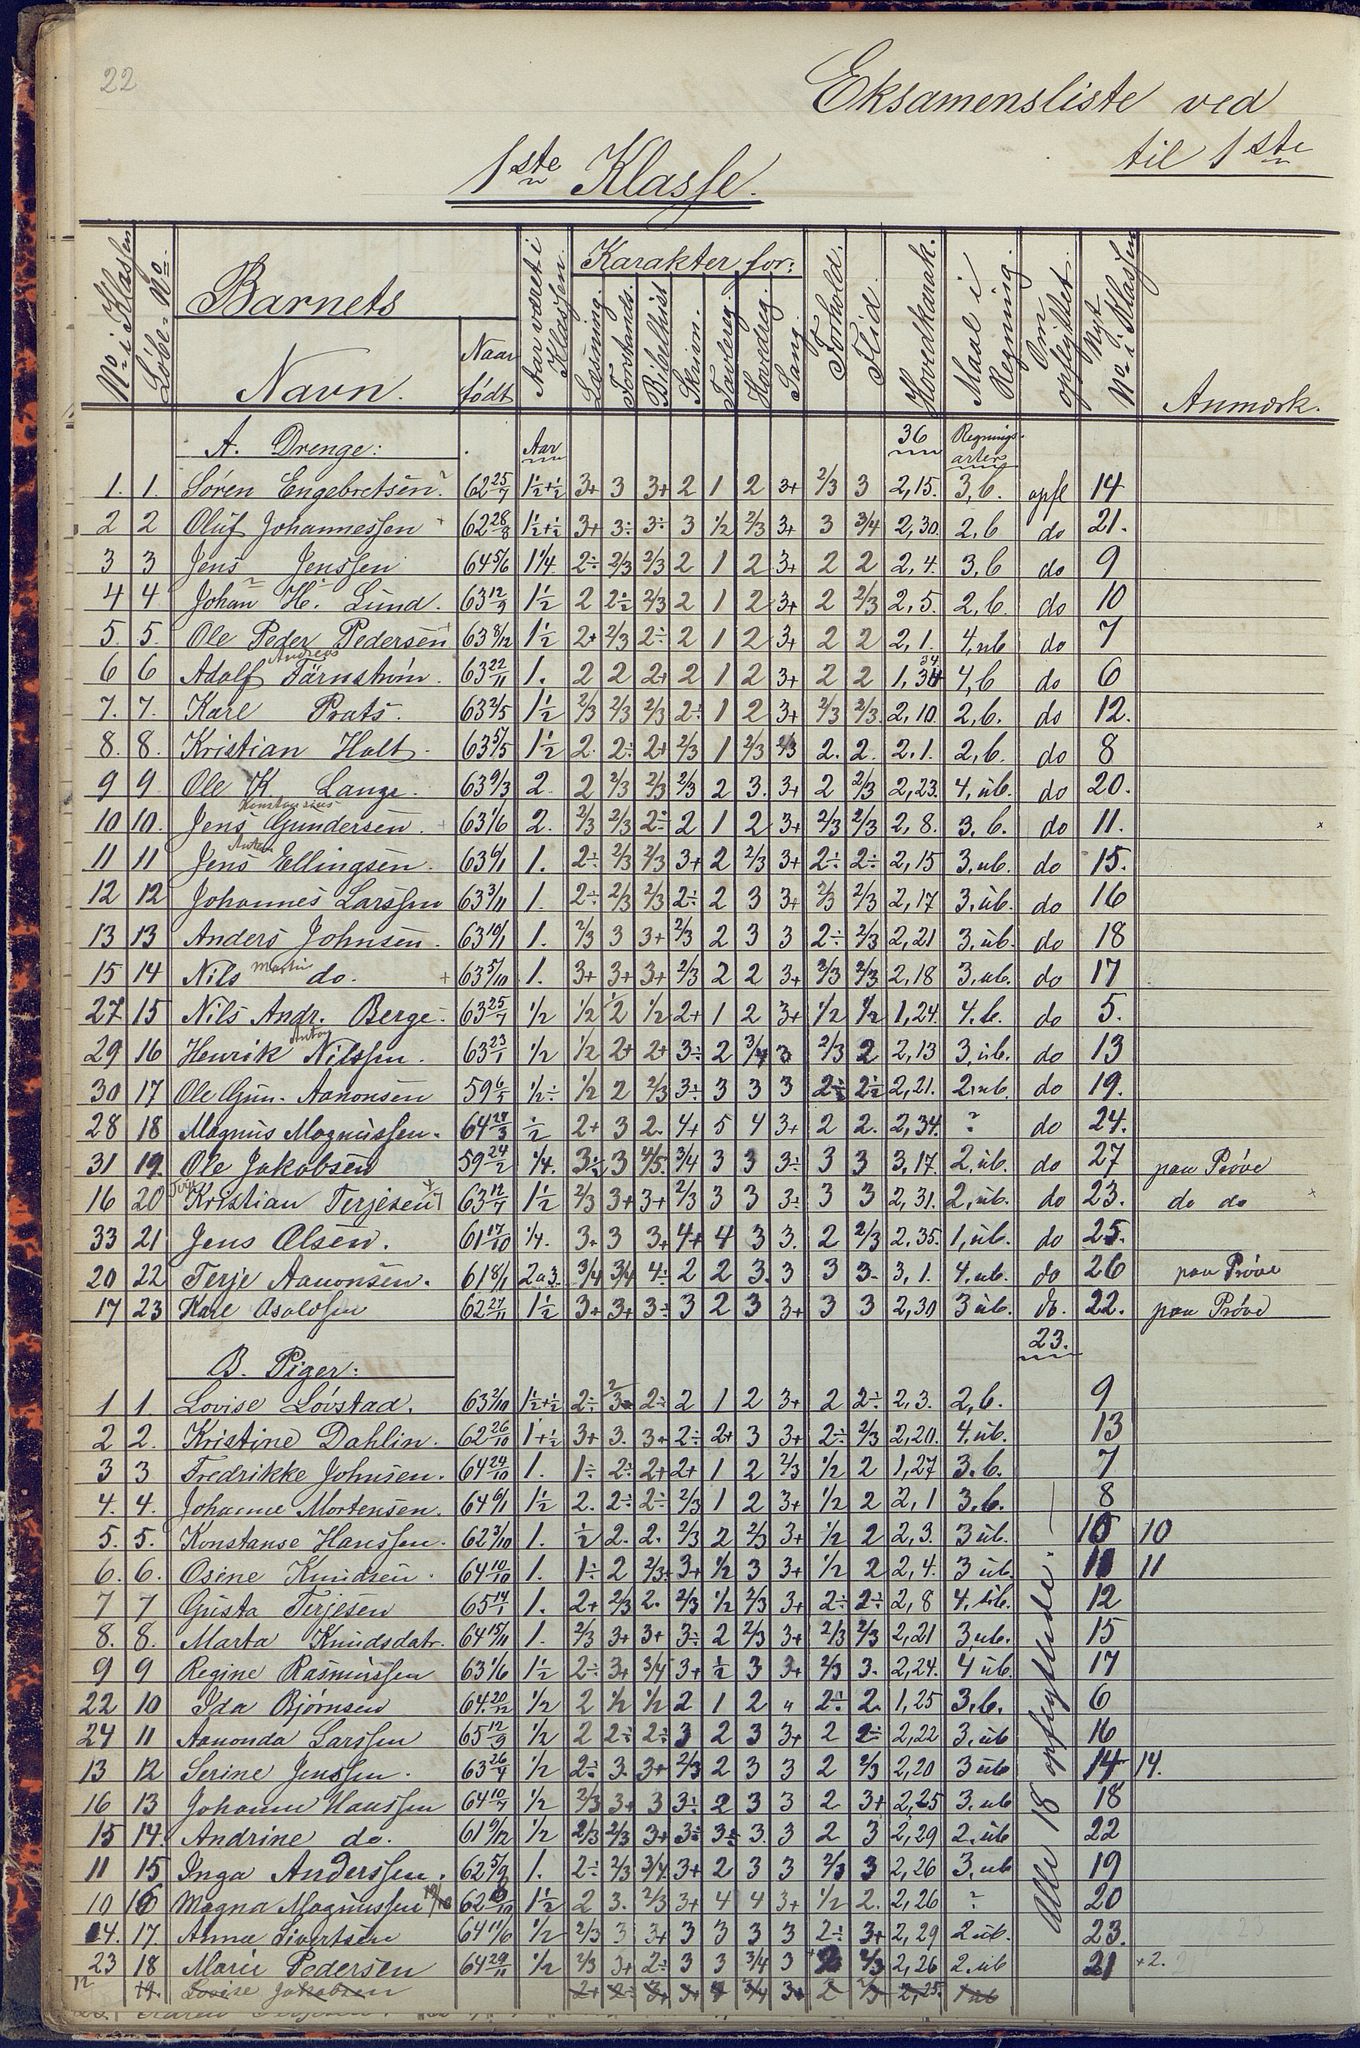 22
Eksamensliste ved
til 1ste
1ste Klasse.
No i Klassen
Löbe-No
Barnets
Navn.
Naar født
Aar været i Klassen
Karakter for:
Læsning.
Forstands.
Bibelhist
Skrivn.
Tavlereg.
Hovedreg.
Sang.
Forhold.
Flid.
Hovedkarak.
Maal i Regning.
Om opflyttet.
Nyt No i Klassen
Anmærk.
A. Drenge: Aar 36 Regnings-arter
1. 1. Søren Engebretsen 62 25/7 1½+½ 3+ 3 3+ 2 1 2 3+ 2/3 3 2,15. 3,b. opfl 14
2 2 Oluf Johannessen 62 28/8 1½+½ 3+ 3÷ 3÷ 3 1/2 2/3 3+ 3 3/4 2,30. 2,b do 21.
3 3 Jens Jenssen 64 5/6 1¼. 2÷ 2/3 2/3 2 1 2 3+ 2 2 2,4. 3,b do 9
4 4 Johan K. Lund. 63 12/9 1½ 2 2÷ 2/3 2 1 2 3+ 2 2/3 2,5. 2,b. do 10
5. 5. Ole Peder Pedersen 63 8/12 1½ 2+ 2/3 2÷ 2 1 2 3+ 2 2 2,1. 4,ub do 7
6 6 Adolf Andreas Färnstrøm. 63 22/11 1. 2 2 2+ 2 1 2 3+ 2 2 1,34 4,b do 6
7. 7. Karl Prats. 63 2/5 1½ 2/3 2/3 2/3 2÷ 1 2 3+ 2/3 2/3 2,10. 2,b. do 12.
8. 8. Kristian Holt. 63 5/5 1½ 2. 2÷ 2+ 2/3 1 2/3 2/3 2. 2. 2.1. 2,b. do 8
9 9 Ole K Lange. 63 9/3 2. 2 2/3 2/3 2/3 2 3. 3+ 2 2/3 2,23. 4,üb. do 20.
10 10. Jens Konstansius Gundersen. 63 1/6 2. 2/3 2/3 2÷ 2 1 2 3+ 2/3 2/3 2,8. 3,b. do 11.
11 11 Jens Anton Ellingsen. 63 6/1 1. 2÷ 2/3 2/3 3+ 2 2/3 3+ 2÷ 2÷ 2,15 3,ub. do 15.
12 12 Johannes Larssen 63 3/11 1. 2÷ 2/3 2/3 2÷ 2 3 3+ 2/3 2/3 2,17 3,üb. do 16
13 13 Anders Johnsen. 63 10/1 1. 2/3 3 3+ 2/3 2 3 3 2÷ 2/3 2,21 3,üb. do 18
15 14 Nils Martin do. 63 5/10 1. 3+ 3+ 3+ 2/3 2 2 3+ 2/3 2/3 2,18 3,ub. do 17
27 15 Nils Andr. Berge 63 25/7 1/2 1/2 1/2 1/2 2+ 1 2 3+ 1/2 1/2 1,24. 4.b. do 5.
29 16 Henrik Antoy Nilssen. 63 23/1 1/2 1/2 2+ 2+ 3÷ 2 3/4 3 2/3 2 2,13 3,üb. do 13
30 17 Ole Gun. Aanonsen 59 6/5 1/2÷ 1/2 2 2/3 3÷ 3 3 3 2÷ 2÷ 2,21. 2.ub do 19.
28 18 Magnus Magnussen. 64 27/3 1/2 2+ 3 2. 4+ 5 4 3+ 2 2. 2,34. ? do 24.
31 19 Ole Jakobsen 59 24/2 1/4. 3÷ 3 4/5. 3/4 3 3 3÷ 3 3 3,17. 2,üb. do 27 paa Prøve
16 20 Kristian Terjesen 63 12/7 1½ 2/3 3+ 3+ 2/3 3 3 3÷ 3 3 2,31. 2,üb. do 23. do do
33 21 Jens Olsen. 61 17/10 1/4. 3+ 3 3+ 4+ 4 3 3. 2 2/3 2,35. 1,üb. do 25.
20 22 Terje Aanonsen. 61 8/1 2 a 3. 3/4 3/4 4÷ 2 2 3. 3 3 3. 3,1. 4.ub. do 26 paa Prøve
17 23 Karl Asoldsen 62 27/11 1½ 3+ 3+ 3÷ 3 2 3 3+ 3 3 2,30 3 üb. do. 22. paa Prøve
23.
B. Piger:
1 1. Lovise Løvstad. 63 2/10 1½+½ 2÷ 2/3 2÷ 2 1 2 3+ 2 2÷ 2,3. 2,b. 9
2 2. Kristine Dahlin. 62 26/10 1+½ 3+ 3. 3+ 2÷ 2+ 3 3+ 2÷ 2/3 2,20. 4,üb. 13
3 3 Fredrikke Johnsen. 64 29/10 1. 1÷ 2÷ 2+ 2+ 1 2 2/3 1/2 2 1,27 3.b. 7
4. 4. Johanne Mortensen. 64 6/1 1½ 2. 2÷ 2÷ 2/3 1 2 3+ 1/2 2 2,1 3,b. 8
5. 5. Konstanse Hanssen. 62 3/10 1. 1/2 2. 2. 2/3 2 2/3 3+ 1/2 2 2,3. 3 üb. 10 10
6. 6. Osine Knudsen. 64 10/10 1. 1÷ 2 2/3+ 3+ 1/2 3 3+ 1/2 2 2,4. 3 üb. 11 11
7 7 Gusta Terjesen 65 14/1 1. 2+ 2/3 2. 2/3 1/2 2/3 3+ 2÷ 2÷ 2,8 4,üb. 12
8. 8. Marta Knudsdatr. 64 15/11 1. 2/3 3+ 3+ 3÷ 2 2/3 3+ 2/3 2/3 2,21 3,ub. 15
9 9 Regine Rasmussen 63 1/6 1½ 2÷ 3+ 3/4 3+ 1/2 3 3+ 2/3 3. 2,24. 4 üb. 17
22 10 Ida Bjørnsen 64 20/12 1/2 2 1/2 1/2 2 1 2 " 2÷ 2. 1,25 3.b. 6
24 11 Aanonda Larssen 65 12/9 1/2 2 2÷ 2÷ 3 2 3 3+ 2 2÷ 2,22 3.üb 16
13 12 Serine Jenssen. 63 26/4 1/2 2÷ 3. 3+ 2/3 2 3 3 2 2/3 2,20 3 üb 14 14.
16 13 Johanne Hanssen 64 10/7 1/2 2/3 3+ 3 3÷ 2 3 3 2 3+ 2,25 3.ub 18
15 14. Andrine do. 61 9/12 1/2 2/3 2/3 3+ 3÷ 3÷ 3. 3 2 3 2,29 2.üb 22
11 15 Inga Anderssen. 62 5/9 1. 2÷ 2/3 3/4. 3+ 2 3 3 2/3 3 2,26 3.ub 19
10 16 Magna Magnussen 1½ 2 3. 2/3 3+ 4 4 3+ 1/2 2. 2,26 ? 20
14. 17. Anne Sivertsen 64 11/6 1/2 2/3 3 3+ 3 3 3 3 2÷ 3+ 2,29 2 üb. 23.
23 18 Marie Pedersen 64 29/11 1/2 2/3 3+ 2÷ 3 3 3/4 3 2 2/3 2,26 2.üb 21 +2.
Alle 18 opflyttede.
12 19. Lovise Jakobsen 2+ 2÷ 3+ 3+ 3/4 3+ 2 2/3 2,25. 1 ub